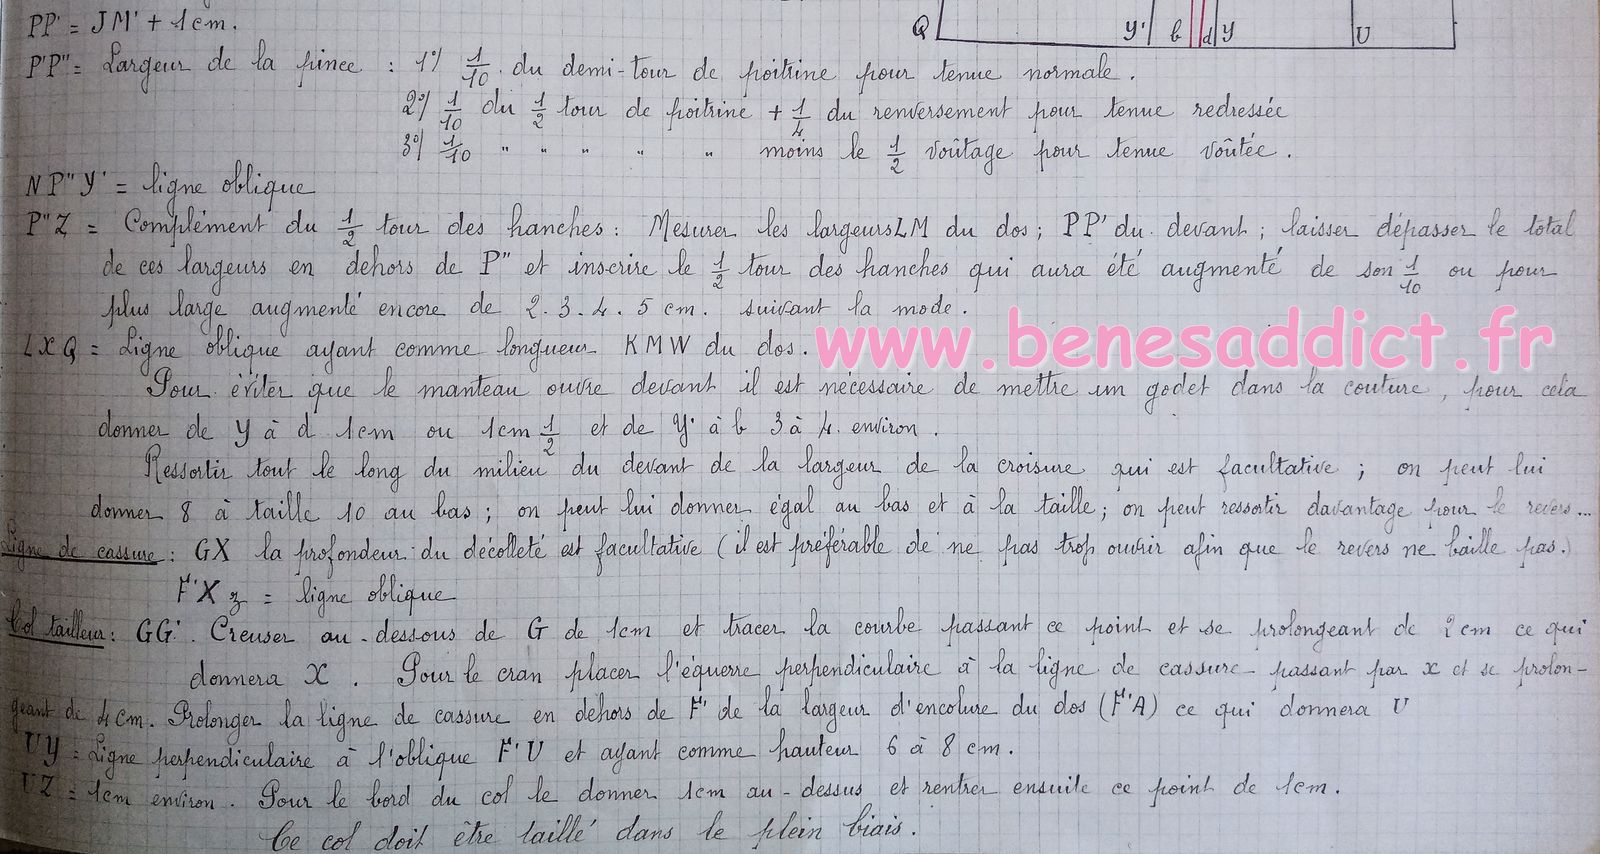 PP' = JM' + 1cm.
Q y' b d y U
P'P" = Largeur de la pince : 1°/ 1/10 du demi-tour de poitrine pour tenue normale.
2°/ 1/10 du 1/2 tour de poitrine + 1/4 du renversement pour tenue redressée
3°/ 1/10 " " " " " moins le 1/2 voûtage pour tenue voûtée.
NP"Y' = ligne oblique
P"Z = Complément du 1/2 tour des hanches : Mesurer les largeurs LM du dos ; PP' du devant ; laisser dépasser le total
de ces largeurs en dehors de P" et inscrire le 1/2 tour des hanches qui aura été augmenté de son 1/10 ou pour
plus large augmenté encore de 2.3.4.5 cm. suivant la mode.
ZXQ = Ligne oblique ayant comme longueur KMW du dos.
www.benesaddict.fr
Pour éviter que le manteau ouvre devant il est nécessaire de mettre un godet dans la couture, pour cela
donner de Y à d 1cm ou 1cm 1/2 et de Y' à b 3 à 4 environ.
Ressortir tout le long du milieu du devant de la largeur de la croisure qui est facultative ; on peut lui
donner 8 à taille 10 au bas ; on peut lui donner égal au bas et à la taille ; on peut ressortir davantage pour le revers...
Ligne de cassure : GX la profondeur du décolleté est facultative (il est préférable de ne pas trop ouvrir afin que le revers ne baille pas.)
F'X z = ligne oblique
Col tailleur : GG'. Creuser au-dessous de G de 1cm et tracer la courbe passant ce point et se prolongeant de 2cm ce qui
donnera X. Pour le cran placer l'équerre perpendiculaire à la ligne de cassure passant par x et se prolon-
geant de 4cm. Prolonger la ligne de cassure en dehors de F' de la largeur d'encolure du dos (F'A) ce qui donnera U
UY = Ligne perpendiculaire à l'oblique F'U et ayant comme hauteur 6 à 8 cm.
UZ = 1cm environ. Pour le bord du col le donner 1cm au-dessus et rentrer ensuite ce point de 1cm.
Ce col doit être taillé dans le plein biais.